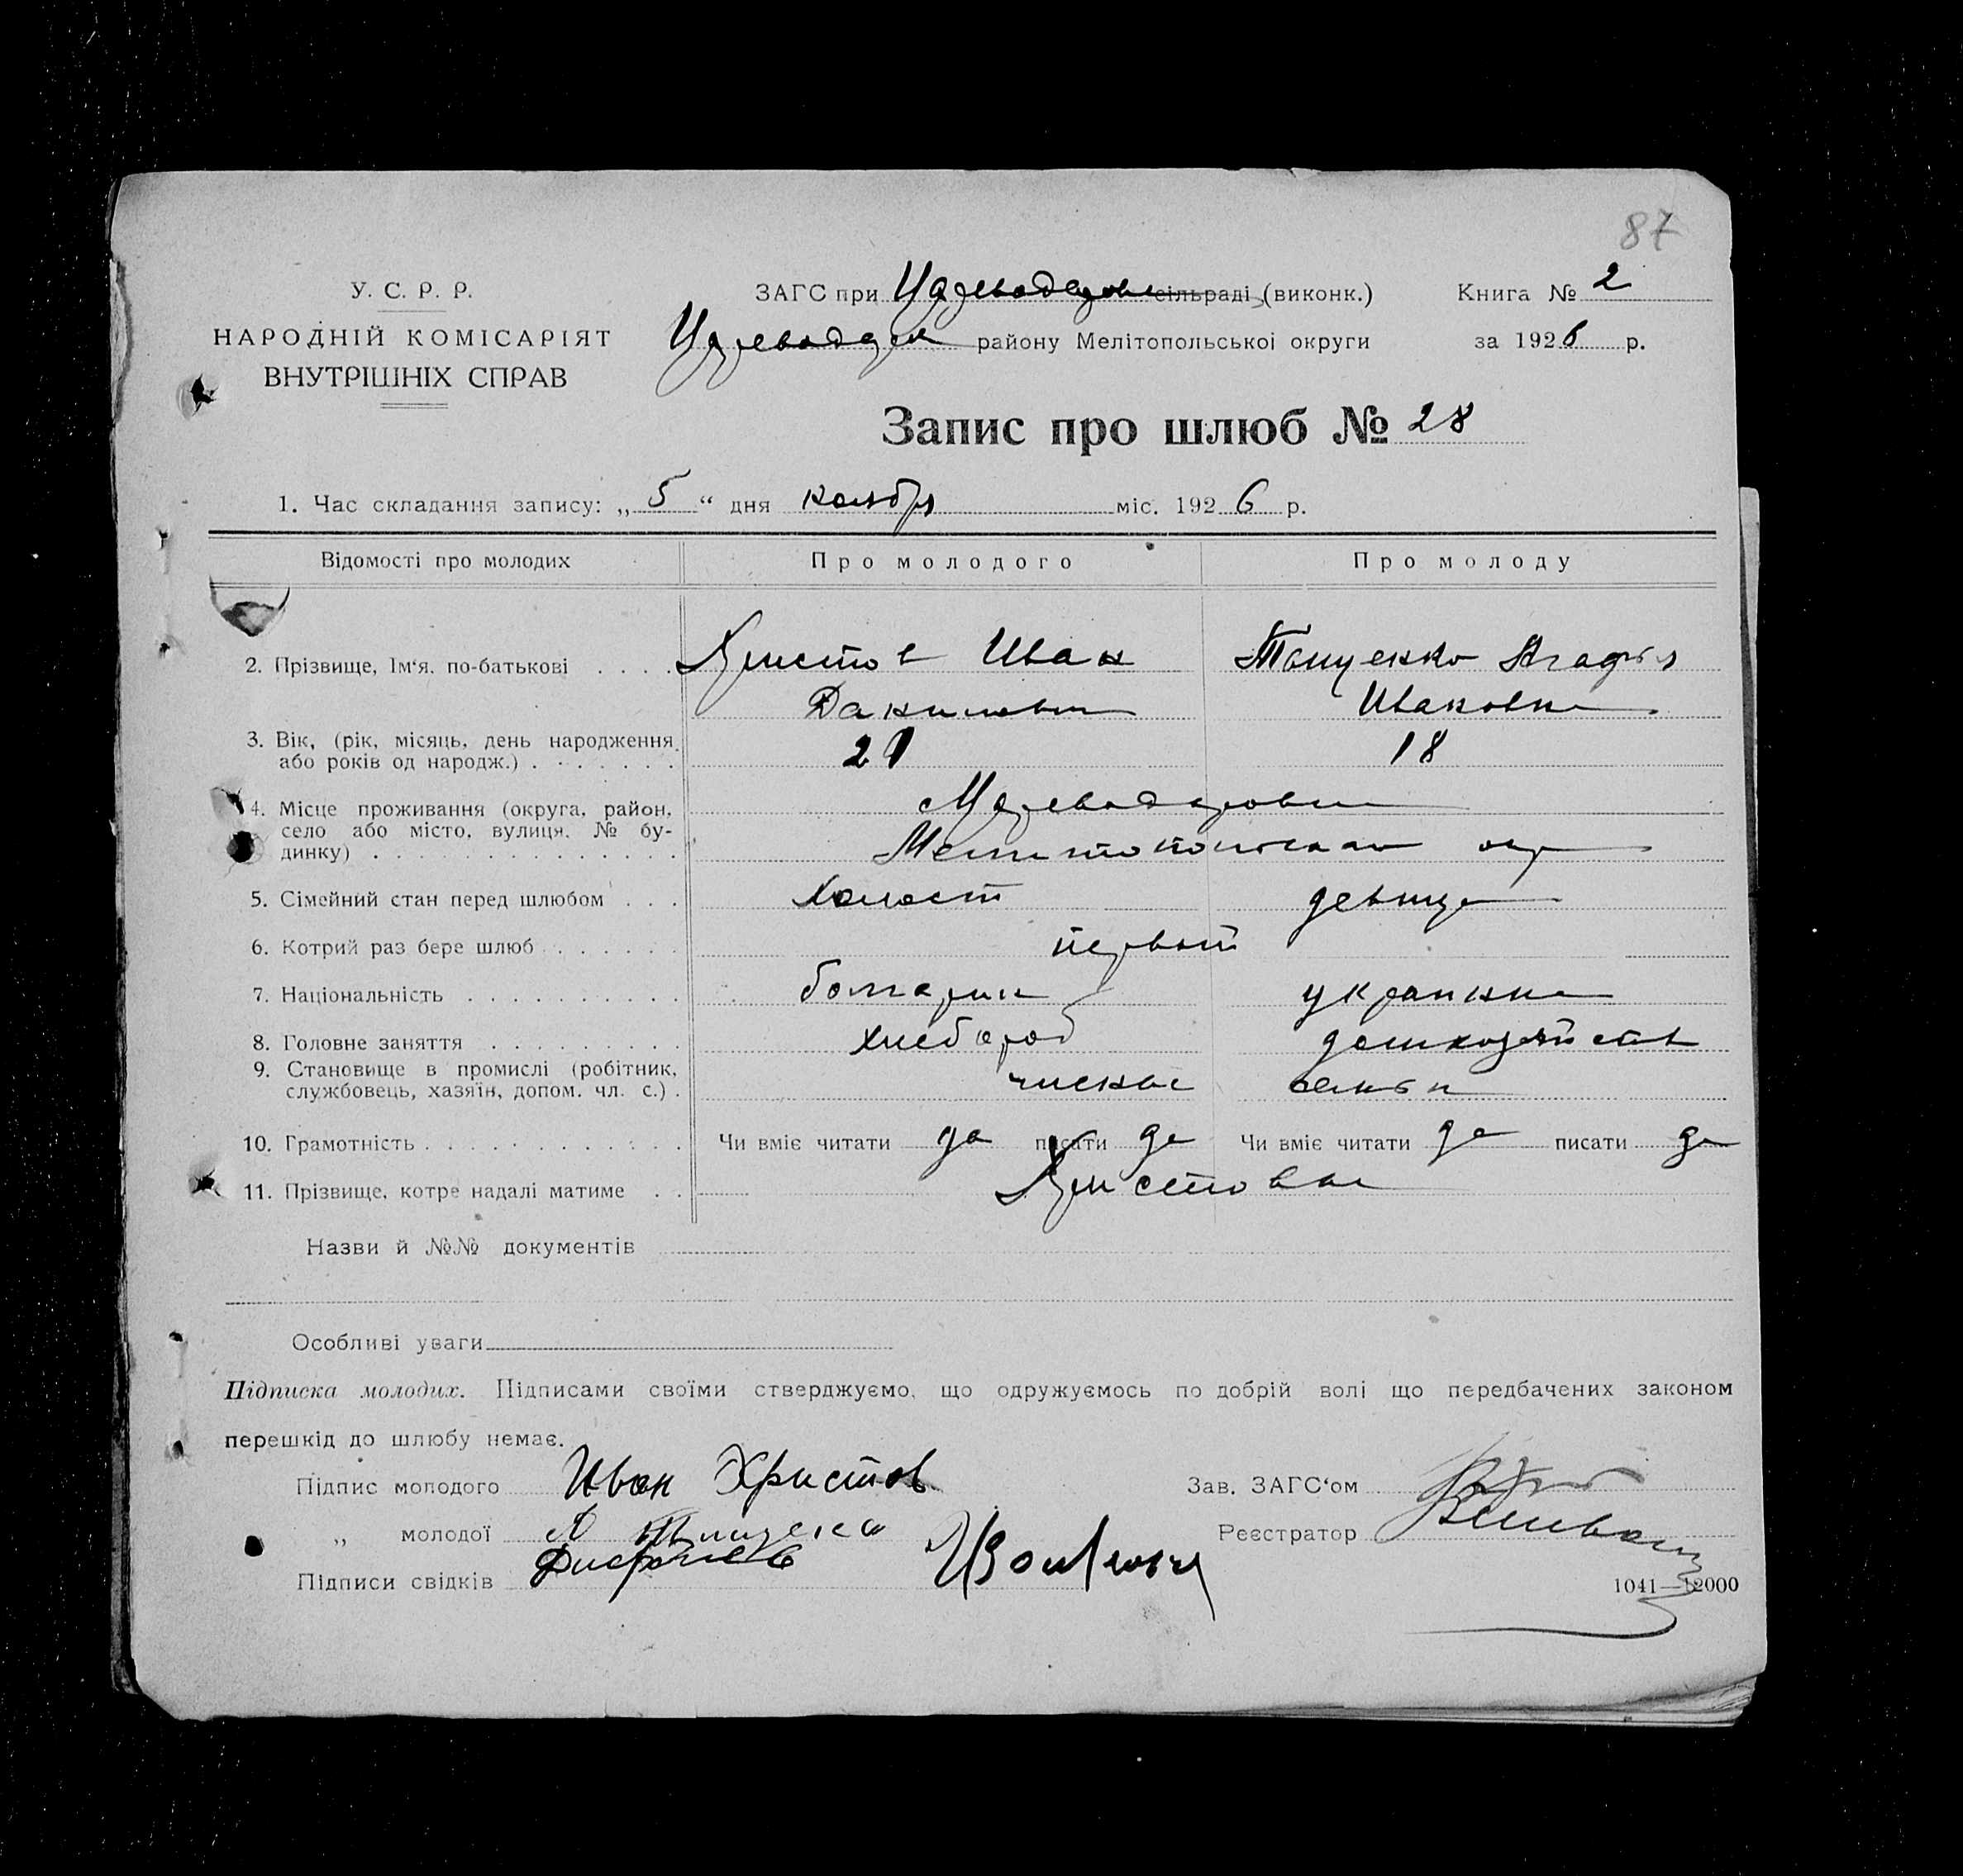 87
У. С. Р. Р.
НАРОДНІЙ КОМІСАРІЯТ
ВНУТРІШНІХ СПРАВ
ЗАГС при Цареводаровск сільраді (виконк.)
Цареводар району Мелітопольської округи
Книга № 2
за 1926 р.
Запис про шлюб № 28
1. Час складання запису: „ 5 “ дня ноября міс. 1926 р.
Відомості про молодих Про молодого Про молоду
2. Прізвище, Ім‘я, по-батькові Христов Иван Агафья
Данилович Ивановна
3. Вік, (рік, місяць, день народження
або років од народж.) 21 18
4. Місце проживання (округа, район,
село або місто, вулиця, № бу-
динку) Мелитопольская окр
5. Сімейний стан перед шлюбом холост девица
6. Котрий раз бере шлюб первый
7. Національність болгарин украинка
8. Головне заняття хлебороб домхозяйств
9. Становище в промислі (робітник,
службовець, хазяїн, допом. чл. с.) члены семьи
10. Грамотність Чи вміє читати да писати да Чи вміє читати да писати да
11. Прізвище, котре надалі матиме Христовы
Назви й №№ документів
Особливі уваги
Підписка молодих. Підписами своїми стверджуємо, що одружуємось по добрій волі що передбачених законом
перешкід до шлюбу немає.
Підпис молодого Иван Христов
„ молодої А
Підписи свідків
Зав. ЗАГС‘ом
Реєстратор
1041—12000